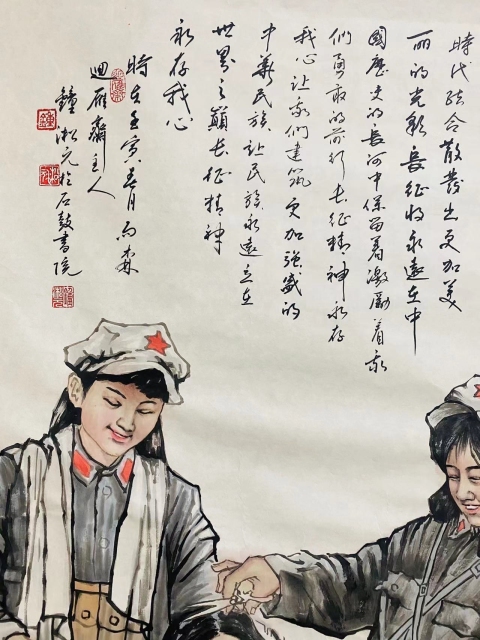 時代結合散發出更加美
丽的光彩长征将永遠在中
國歷史的长河中保留着激勵着我
们勇敢的前行长征精神永存
我心让我们建筑更加強盛的
中華民族让民族永遠立在
世界之巅长征精神
永存我心
時在壬寅春月
迴雁齋主人
鐘淑元於石鼓書院